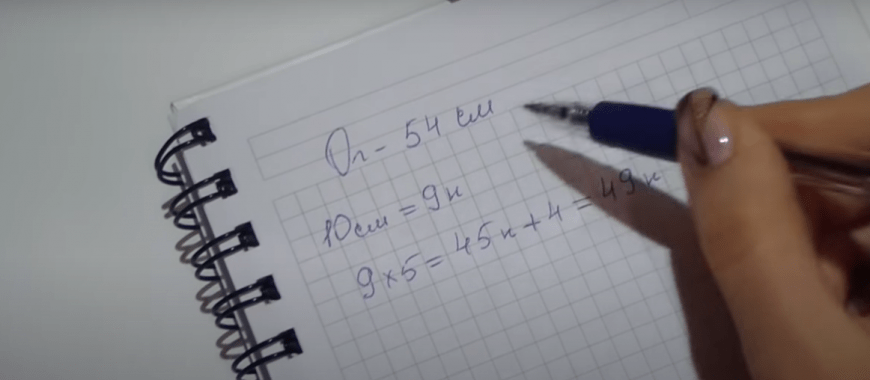 Ол - 54 см
10см = 9п
9×5 = 45п + 4 = 49п